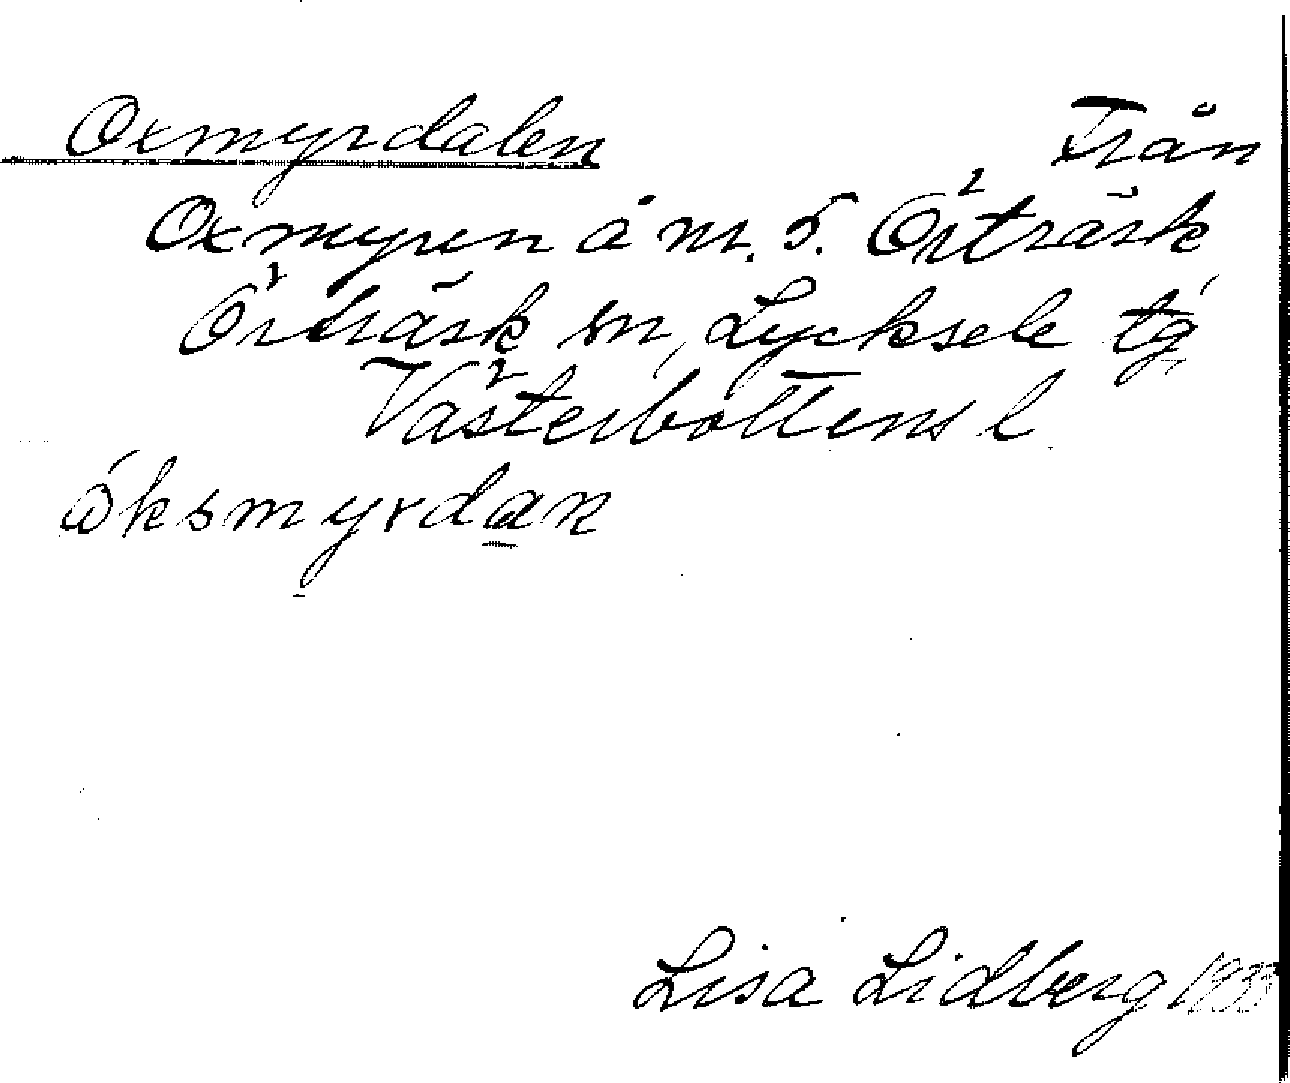 Oxmyrdalen Från
Oxmyren å m. ö. Örträsk
Örträsk sn, Lycksele tg,
Västerbottens l
öksmyrdan
Lisa Lidberg 1933